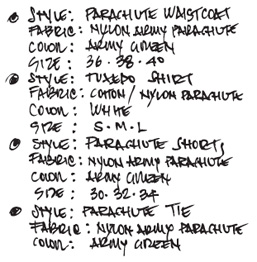 STYLE: PARACHUTE WAISTCOAT
FABRIC: NYLON ARMY PARACHUTE
COLOUR: ARMY GREEN
SIZE : 36 · 38 · 40
STYLE: TUXEDO SHIRT
FABRIC: COTTON / NYLON PARACHUTE
COLOUR: WHITE
SIZE : S · M · L
STYLE: PARACHUTE SHORTS
FABRIC: NYLON ARMY PARACHUTE
COLOUR: ARMY GREEN
SIZE : 30 · 32 · 34
STYLE: PARACHUTE TIE
FABRIC: NYLON ARMY PARACHUTE
COLOUR: ARMY GREEN